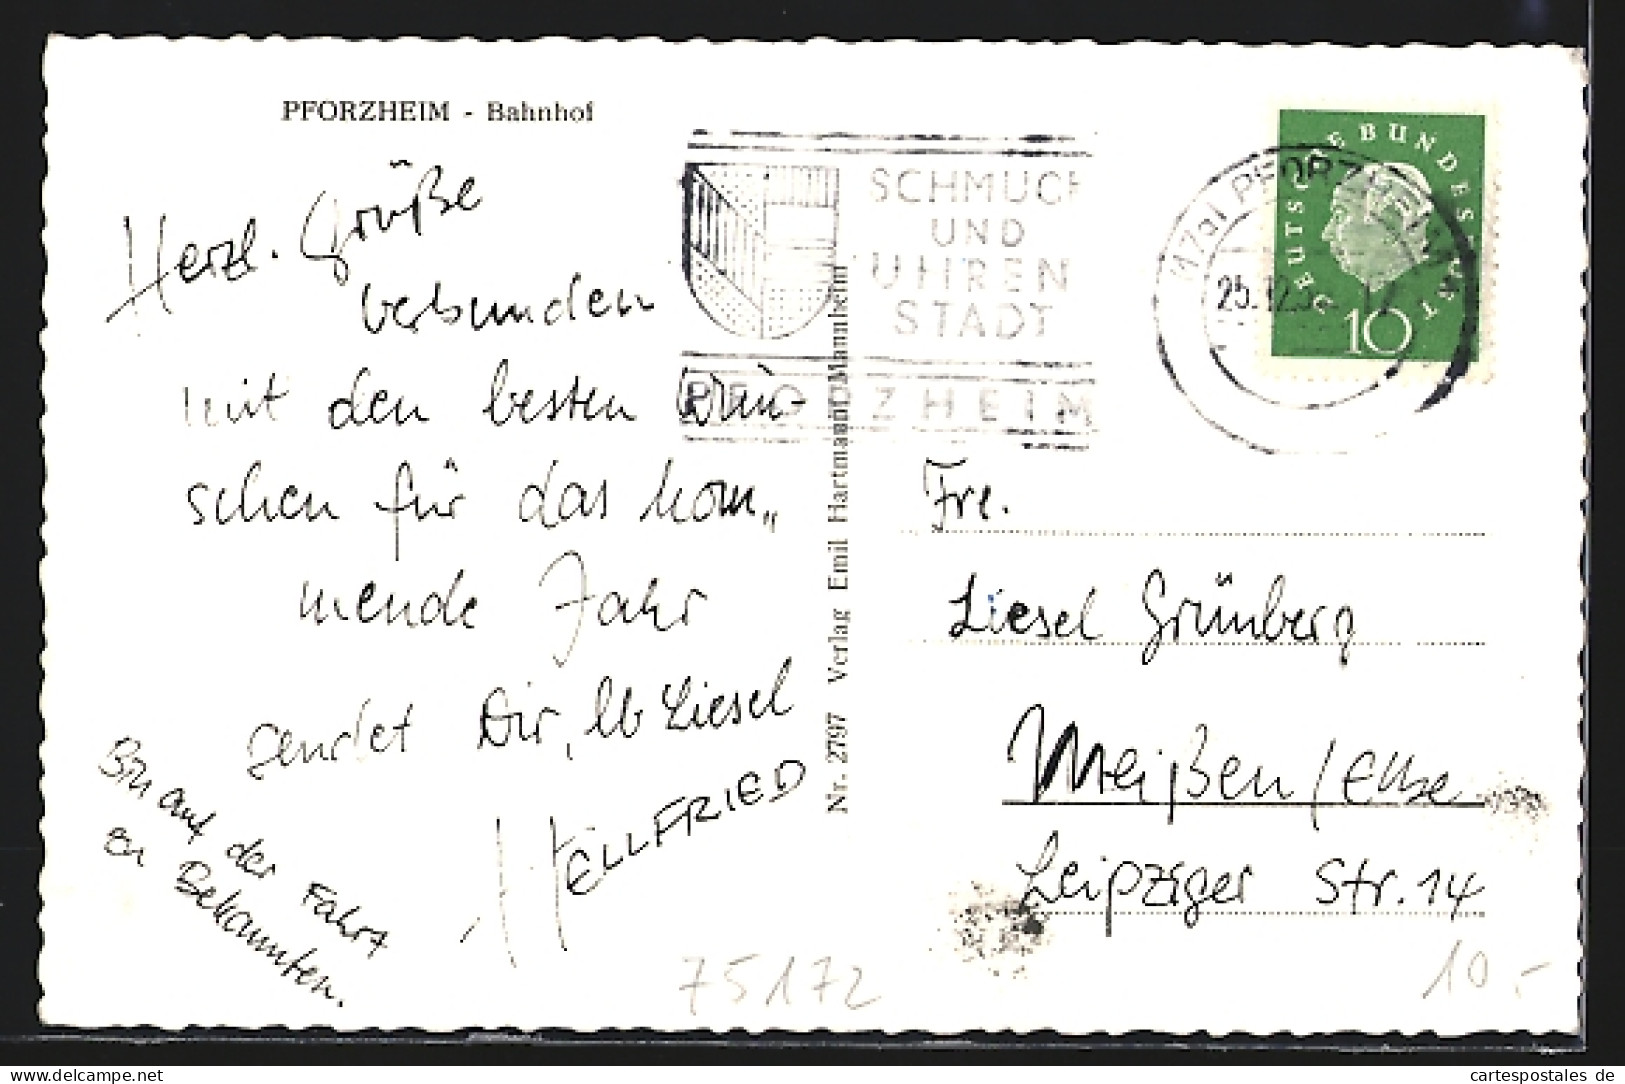 PFORZHEIM - Bahnhof
Herzl. Grüße
verbunden
mit den besten Wün-
schen für das kom„
mende Jahr
sendet Dir, lb Liesel
HELLFRIED
Bin auf der Fahrt
zu Bekannten.
Nr. 2797 Verlag Emil Hartmann, Mannheim
SCHMUCK
UND
UHREN
STADT
PFORZHEIM
(17a) PFORZHEIM
25.12.5
DEUTSCHE BUNDESPOST
10
Frl.
Liesel Grünberg
Meißen/Elbe
Leipziger Str. 14
75172
10.-
cartespostales.de
cartespostales de